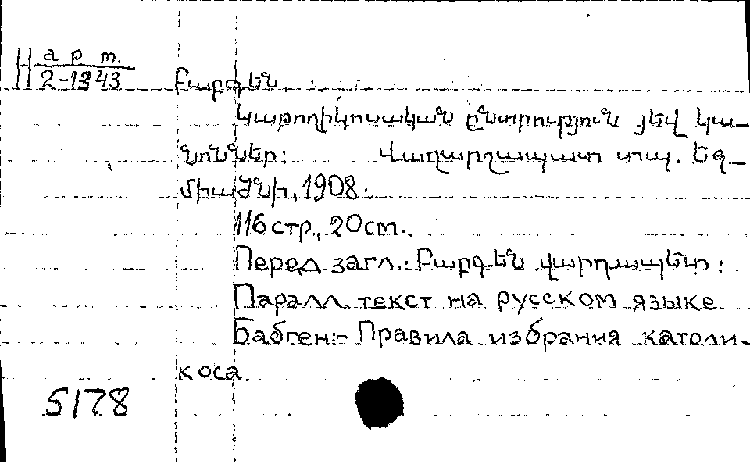 а р т.
2-1343
Բաբգեն
Կաթողիկոսական ընտրություն յեվ կա-
նոններ: Վաղարշապատ տպ. Եջ-
միածնի, 1908.
116 стр., 20 cm.
Перед загл.: Բաբգեն վարդապետ:
Паралл. текст на русском языке
Бабген:- Правила избрания католи-
коса
5178